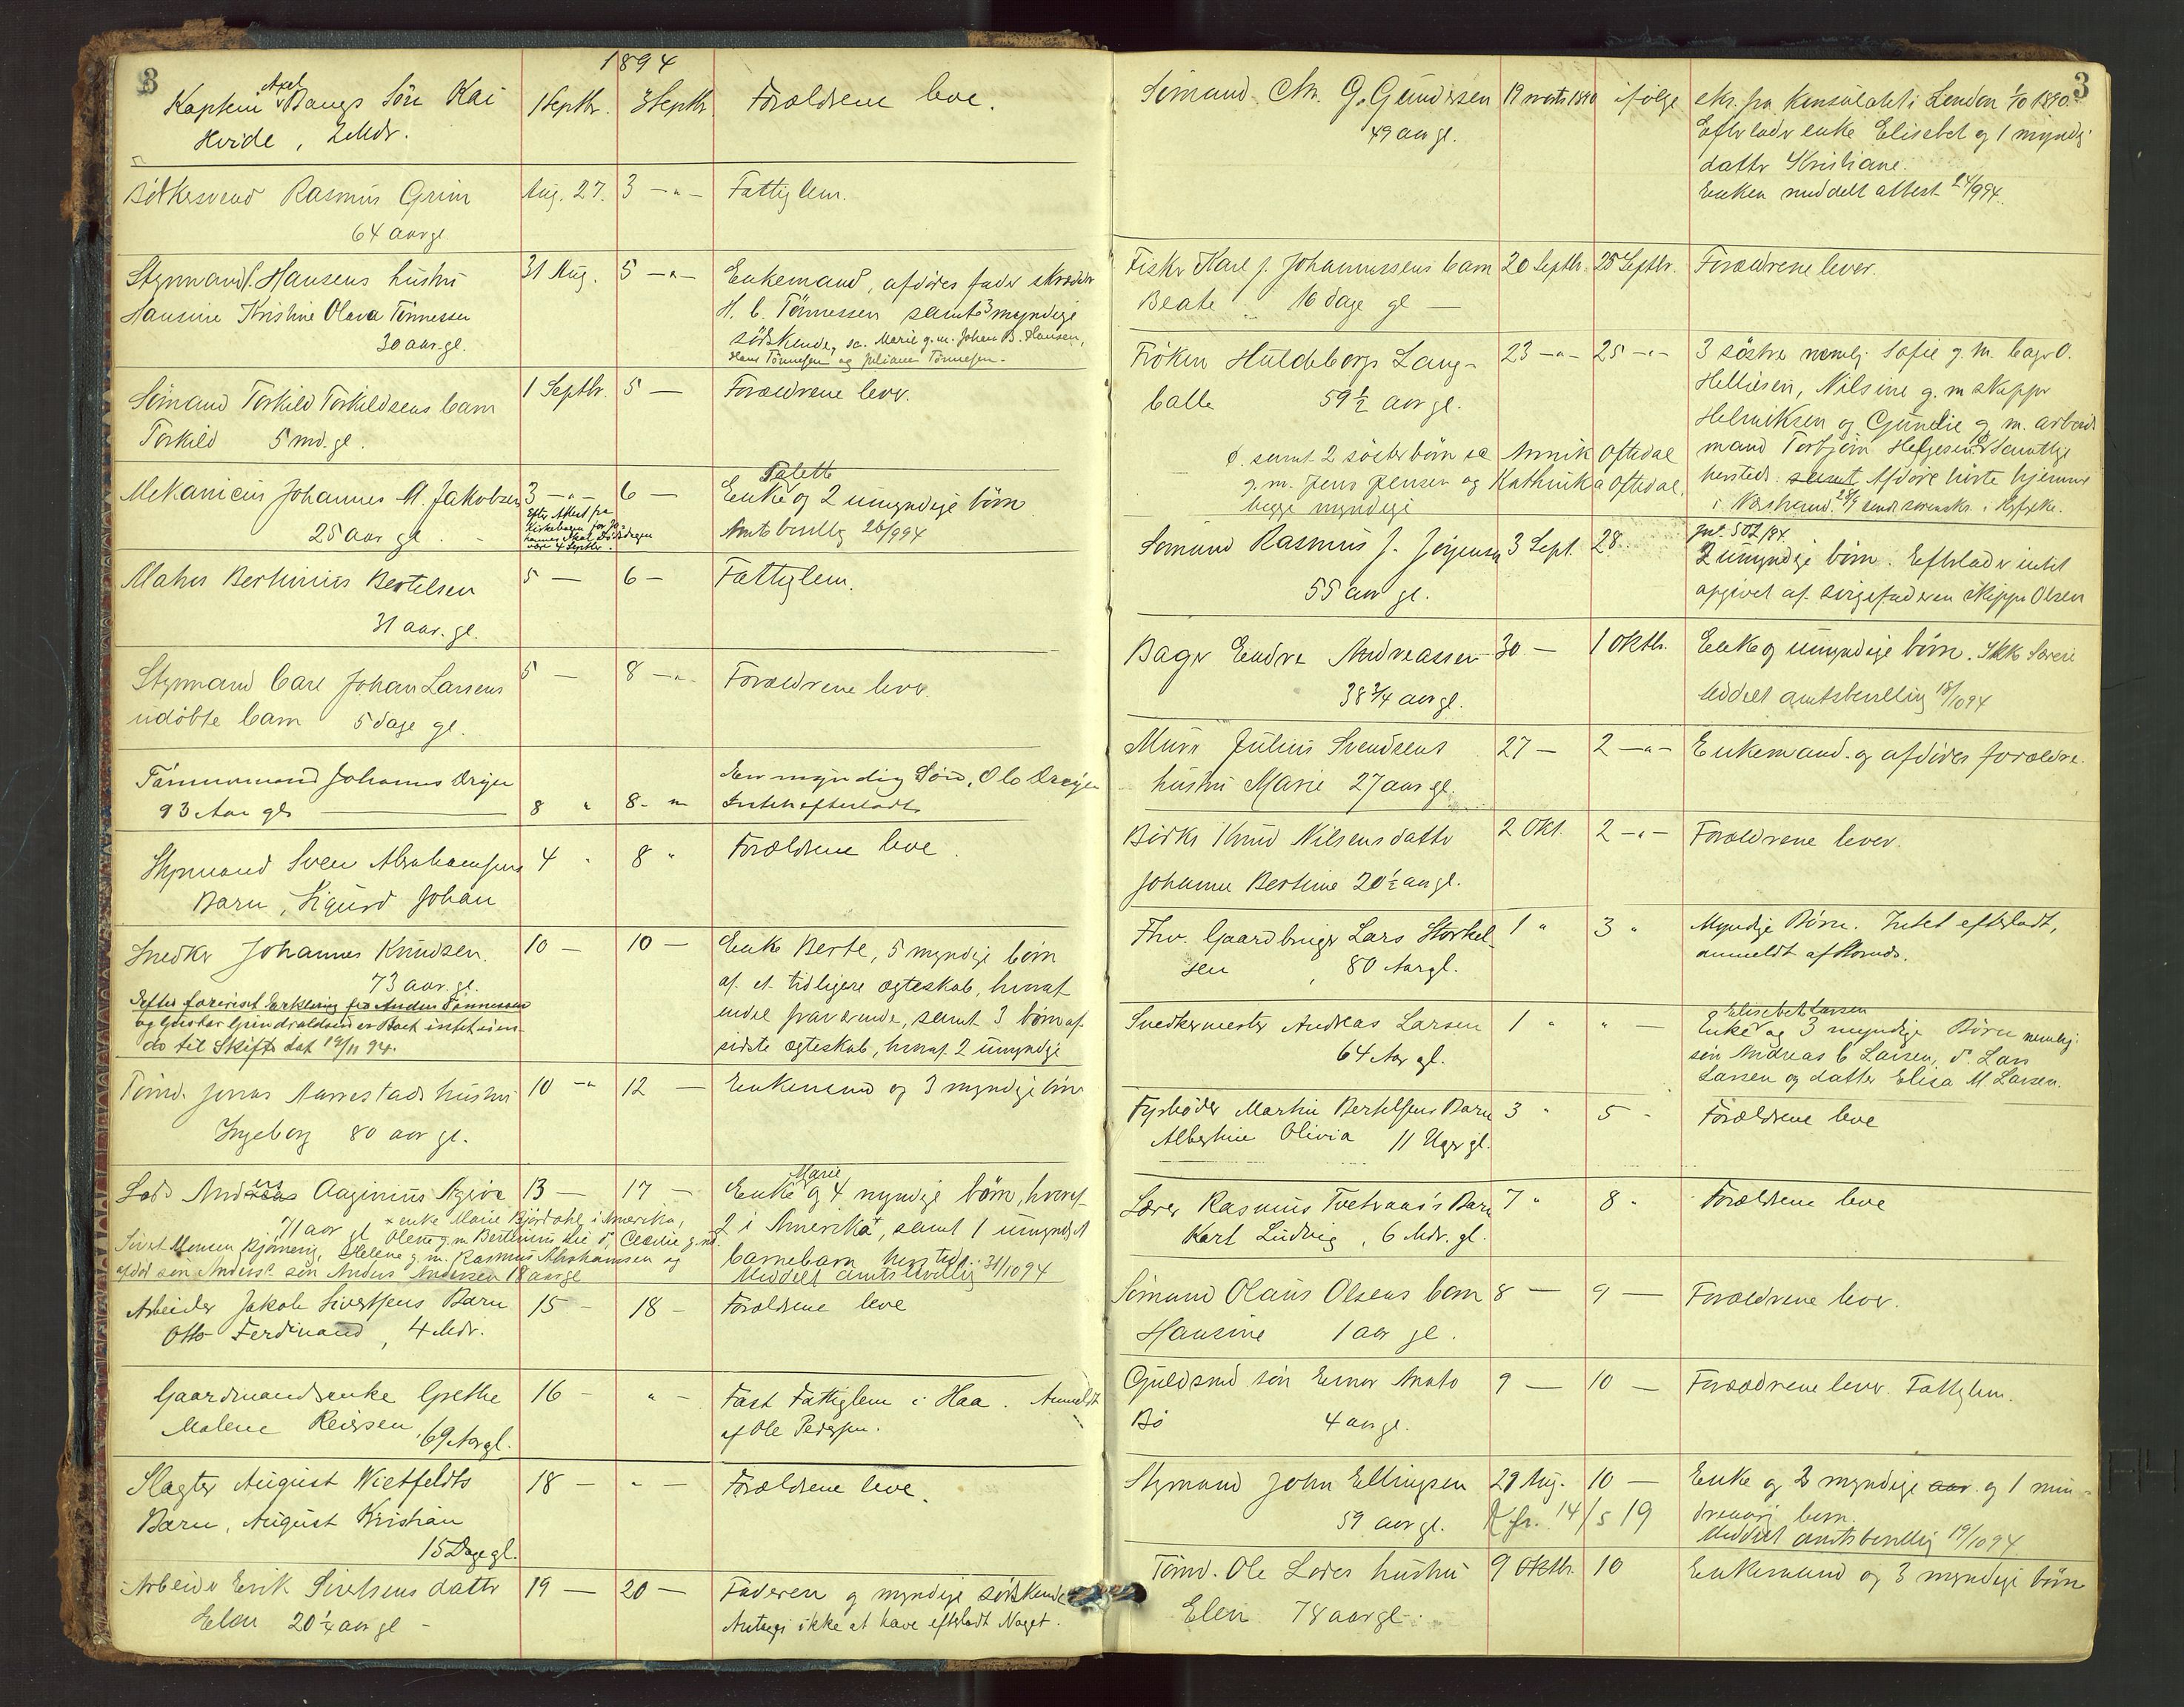 1894
3
Kaptein Axel Bangs Søn Kai 1 Septbr. 3 Septbr. Forældrene leve.
Hvide, 2 Mdr.
Bødkersvend Rasmus Grim Aug. 27. 3 —"— Fattiglem.
64 aar gl
Styrmand Hansens hustru 31 Aug. 5 —"— Enkemand, afdødes fader skrædder
Hansine Kristine Olava Tønnessen H. C. Tönnessen samt 3 myndige
30 aar gl. södskende, sa. Marie g.m. Johan B. Hansen,
Hans Tönnesen og Juliane Tönnesen.
Sömand Torkild Torkildsens barn 1 Septbr. 5 — Forældrene lever.
Torkild 5 md. gl.
Mekanicus Johannes M. Jakobsen 3 —"— 6 — Enke og 2 umyndige börn
25 aar gl. Efter Attest fra Amtsbevillg 26/9 94
Kirkebogen for Jo-
hannes
være 4 Septbr.
Maler Bertinius Bertelsen 5 — 6 — Fattiglem.
31 aar. gl.
Styrmand Carl Johan Larsens 5 — 8 —"— Forældrene lever.
udöbte barn 5 dage gl.
Tömmermand Johannes Dreyer En myndig Sön, Ole Dreyer
93 Aar gl. — 8 " 8 - " Intet efterladt
Styrmand Sven Abrahamsens 4 " 8 " Forældrene leve.
Barn, Sigurd Johan
Snedker Johannes Knudsen. 10 — 10 — Enke Berte, 5 myndige börn
73 aar. gl. af et tidligere ægteskab, hvoraf
Efter forevist Erklæring fra Anders Tönnessen endel fraværende, samt 3 börn af
og Gustav Grindvoldsen er Boet intet eien- sidste ægteskab, hvoraf 2 umyndige
do til Skifte dat 19/11 94.
Tömd. Jonas Narrestads hustru 10 —" 12 — Enkemand og 3 myndige börn
Ingeborg 80 aar gl.
Lods Anders Aaginius Agière 13 — 17 — Enke Marie og 4 myndige börn, hvoraf
71 aar gl × enke Marie Bjørdahl i Amerika, 2 i Amerika, samt 1 umyndigt
Sivert Monsen Bjørneng, Helene g.m. Rasmus Abrahamsen og barnebarn
afdöd sön Anders's sön Anders Andersen 18 aar gl Meddelt amtsbevillig 31/10 94
Arbeider Jakob Sivertsens Barn 15 — 18 — Forældrene leve
Otto Ferdinand, 4 Mdr.
Gaardmandsenke Grethe 16 — " — Fast Fattiglem i Haa. Anmeldt
Malene Reiersen, 69 Aar gl. af Ole Pedersen.
Slagter August Wietfeldts 18 — " — Forældrene leve.
Barn, August Kristian
15 Dage gl.
Arbeider Erik Sivertsens datter 19 — 20 — Faderen og myndige södskende
Elen 20 1/4 aar gl — Antages ikke at have efterladt Noget.
3
Sömand Chr. G. Gundersen 19 marts 1890 ifølge skr. fra Konsulatet i London 1/10 1890.
49 aar gl. Efterlader enke Elisebet og 1 myndig
datter Kristiane.
Enken meddelt attest 24/9 94.
Fisker Karl J. Johannessens barn 20 Septbr. 25 Septbr. Forældrene lever.
Beate 16 dage gl —
Fröken Huldeborg Lang- 23 —"— 25 —"— 3 söstre nemlig Sofie g.m. bager O.
balle 59 1/2 aar gl. Helliesen, Nilsine g.m skipper
Helmiksen og Gundie g.m. arbeids
ø. samt 2 sösterbörn sa Annik Oftedal mand Torbjörn Helgesen Samtlige
g.m. Jens Jensen og Kathrinka Oftedal, herstads. Afdöde hörte hjemme
begge myndige
Sömand Rasmus J. Jörgensen 3 Sept. 28. Jnr. 502/94.
55 aar gl. 2 umyndige börn. Efterlader intet
opgivet af svigerfaderen Skipper Olsen
Bager Endre Andreassen 30 — 1 Oktbr. Enke og umyndige börn.
38 3/4 aar gl. Meddelt amtsbevilling 18/10 94
Murer Julius Svendsens 27 — 2 —"— Enkemand og afdödes forældre.
hustru Marie 27 aar gl.
Bödker Knud Nilsens datter 2 Okt. 2 —"— Forældrene lever.
Johanne Bertine 20 1/2 aar gl.
Fhv. Gaardbruger Lars Storkel 1 " 3 " Myndige Börn. Intet efterladt,
sen, 80 Aar gl. anmeldt af
Snedkermester Andreas Larsen 1 " " — Enke Elisebet Larsen og 3 myndige Börn nemlig:
64 Aar gl. sön Andreas C Larsen, do Lars
Larsen og datter Elisa M Larsen.
Fyrböder Martin Bertelsens Barn 3 " 5 " Forældrene leve
Albertine Olivia 11 Uger gl.
Lærer Rasmus Tvetraas's Barn 7 " 8 " Forældrene leve
Karl Ludvig, 6 Mdr. gl.
Sömand Olaus Olsens barn 8 — 9 — Forældrene lever.
Hansine 1 aar gl.
Guldsmed sön Einar Anato 9 — 10 — Forældrene lever. Fattiglem.
Bö 4 aar gl.
Styrmand John Ellingsen 29 Aug. 10 — Enke og 2 myndige og 1 min-
59 aar gl. Kfr. 14/5 19 dreaarig barn.
Meddelt amtsbevillig 19/10 94
Tömd. Ole Lodes hustru 9 Oktbr. 10 Enkemand og 3 myndige börn
Elen 78 aar gl.